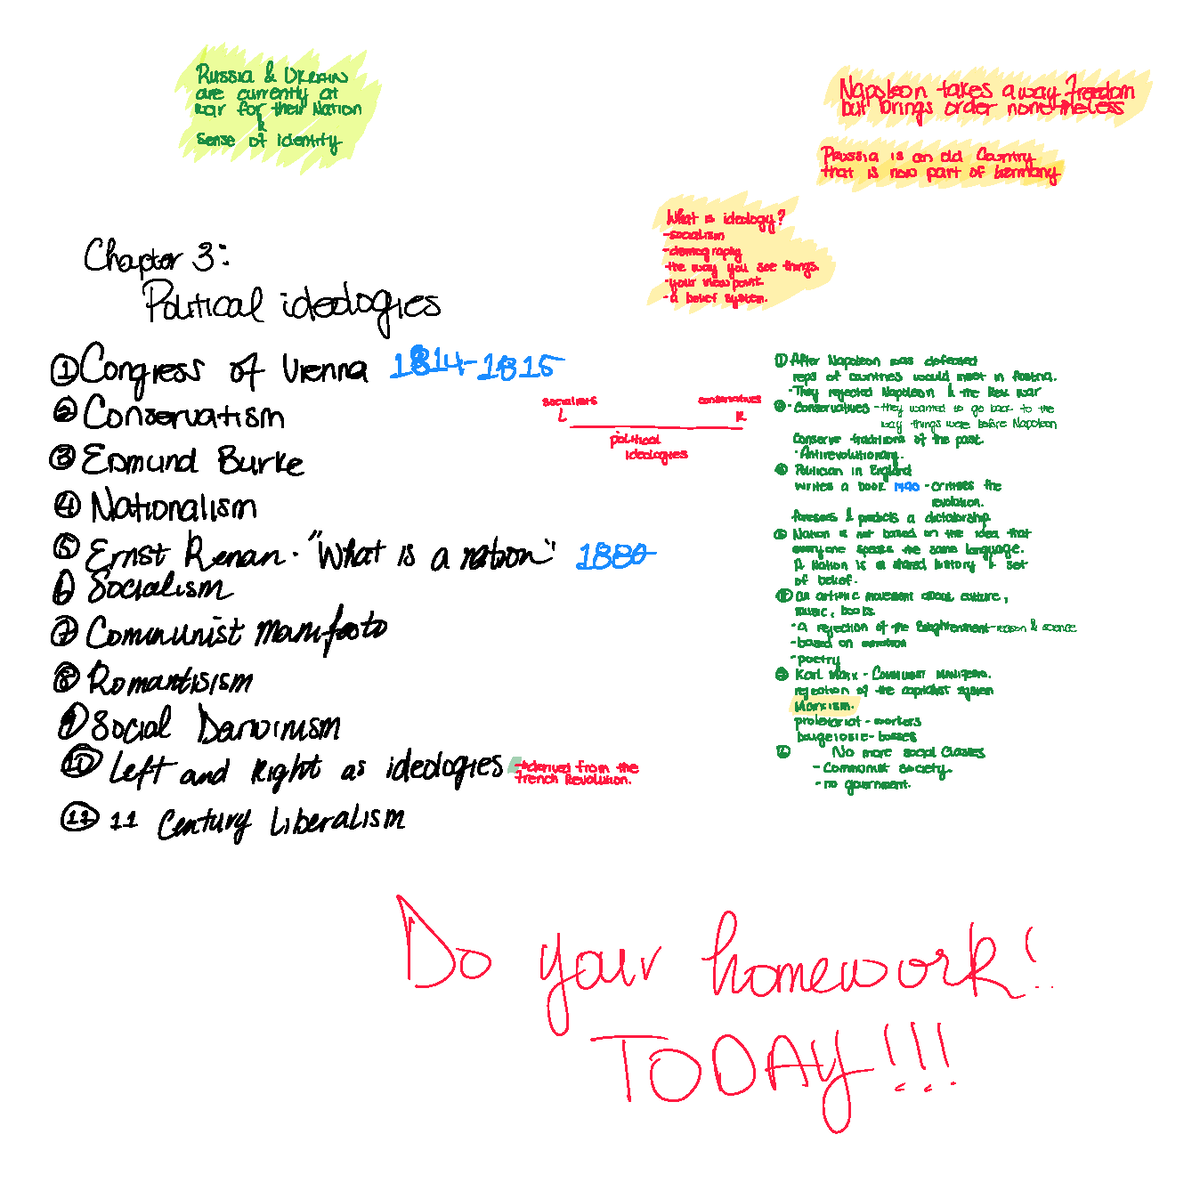 Russia & Ukrain
are currently at
war for their Nation
&
sense of identity
Napoleon takes away freedom
but brings order nonetheless
Prussia is an old Country
that is now part of Germany
What is ideology?
-socialism
-demography
the way you see things.
-your view point
-a belief system.
Chapter 3:
Political ideologies
① Congress of Vienna 1814-1815
② Conservatism
③ Edmund Burke
④ Nationalism
⑤ Ernst Renan. "What is a nation" 1880
⑥ Socialism
⑦ Communist Manifesto
⑧ Romantisism
⑨ Social Darwinism
⑩ Left and Right as ideologies → derived from the
french Revolution.
⑪ 11 Century Liberalism
socialists conservatives
L R
political
ideologies
① After Napoleon was defeated
reps of countries would meet in
-They rejected Napoleon & the Rev. war
② -Conservatives -they wanted to go back to the
way things were before Napoleon
Conserve traditions of the past.
-Antirevolutionary.
Politician in England
writes a book 1790 -critises the
revolution.
foresees & predicts a dictatorship
Nation is not based on the idea that
everyone speaks the same language.
A Nation is a shared history & set
of belief.
an artistic movement about culture,
music, books.
-a rejection of the Enlightenment-reason & science
-based on emotion
-poetry
Karl Marx - Communist Manifesto.
rejection of the capitalist system
Marxism.
proletariat - workers
bougeiosie - bosses
No more social classes
-Communist Society.
-no government.
Do your homework!
TODAY!!!